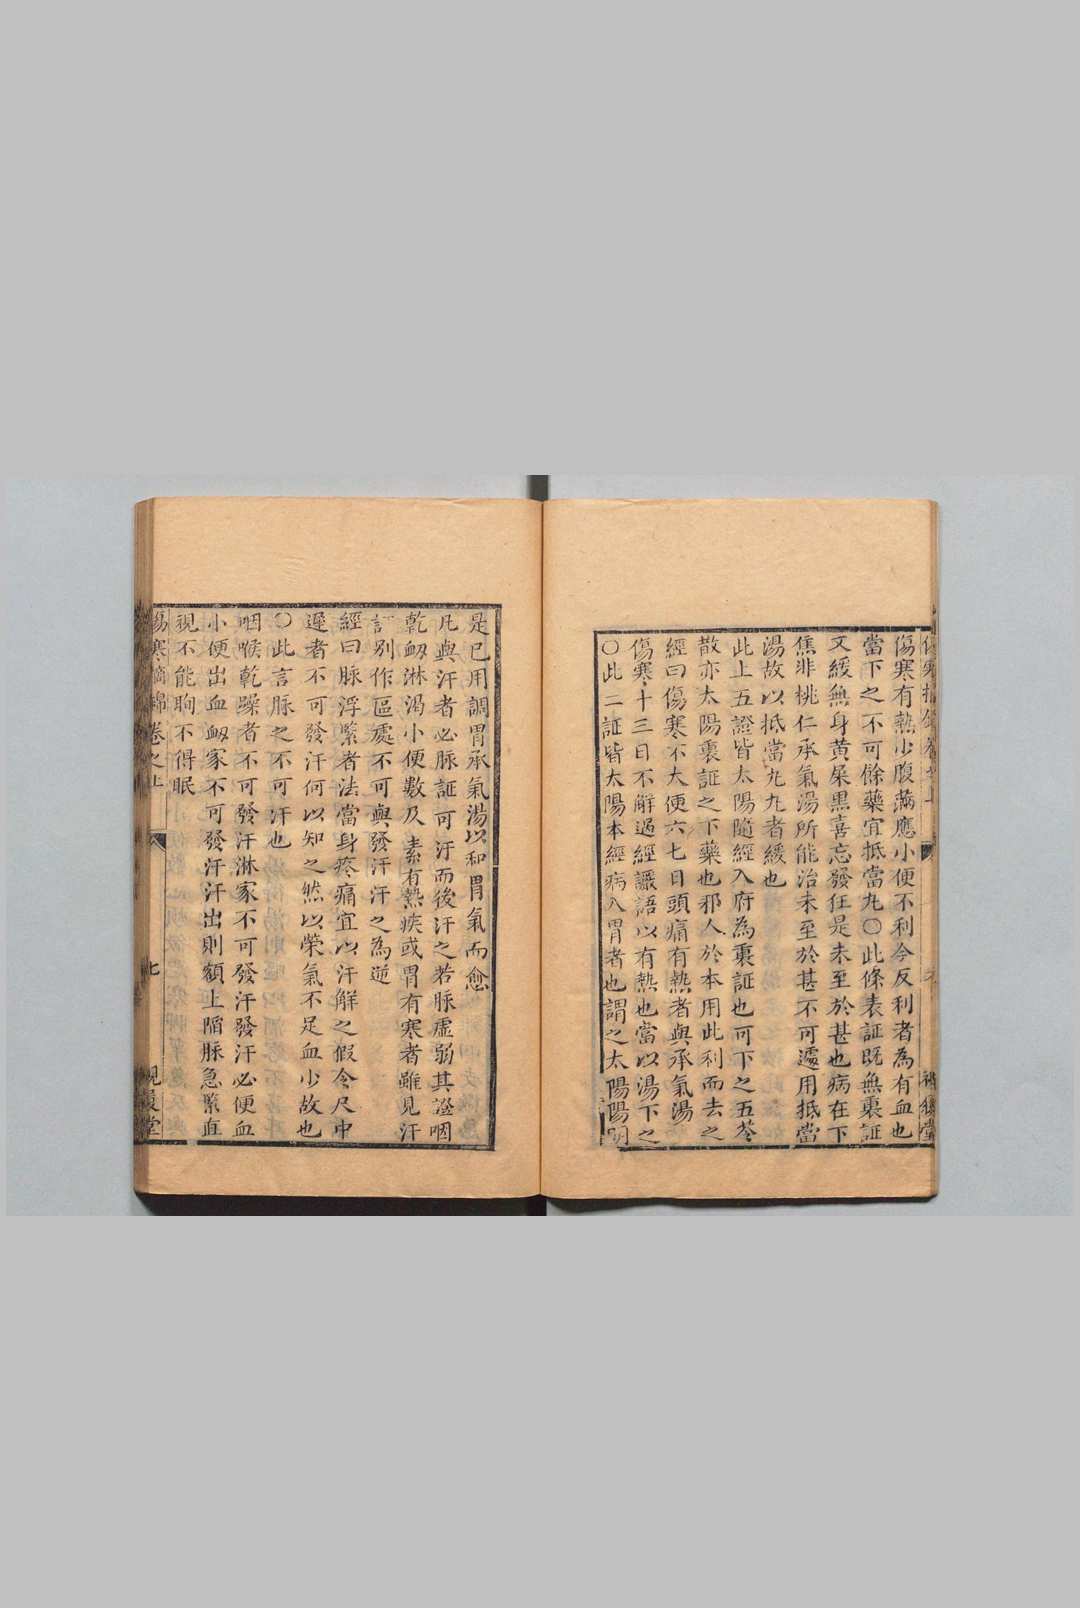 傷寒有熱少腹滿應小便不利今反利者為有血也
當下之不可餘藥宜抵當丸〇此條表証既無裏証
又緩無身黃屎黒喜忘發狂是未至於甚也病在下
焦非桃仁承氣湯所能治未至於甚不可遽用抵當
湯故以抵當丸丸者緩也
此上五證皆太陽隨經入府為裏証也可下之五苓
散亦太陽裏証之下藥也邪入於本用此利而去之
經曰傷寒不大便六七日頭痛有熱者與承氣湯
傷寒十三日不解過經讝語以有熱也當以湯下之
〇此二証皆太陽本經病入胃者也謂之太陽陽明
是已用調胃承氣湯以和胃氣而愈
凡與汗者必脉証可汗而後汗之若脉虛弱其證咽
乾衂淋渴小便數及 素有熱疾或胃有寒者雖見汗
証別作區處不可與發汗汗之為逆
經曰脉浮緊者法當身疼痛宜以汗解之假令尺中
遲者不可發汗何以知之然以榮氣不足血少故也
〇此言脉之不可汗也
咽喉乾躁者不可發汗淋家不可發汗發汗必便血
小便出血衂家不可發汗汗出則額上陷脉急緊直
視不能眴不得眠
傷寒摘錦卷之上 七 視履堂